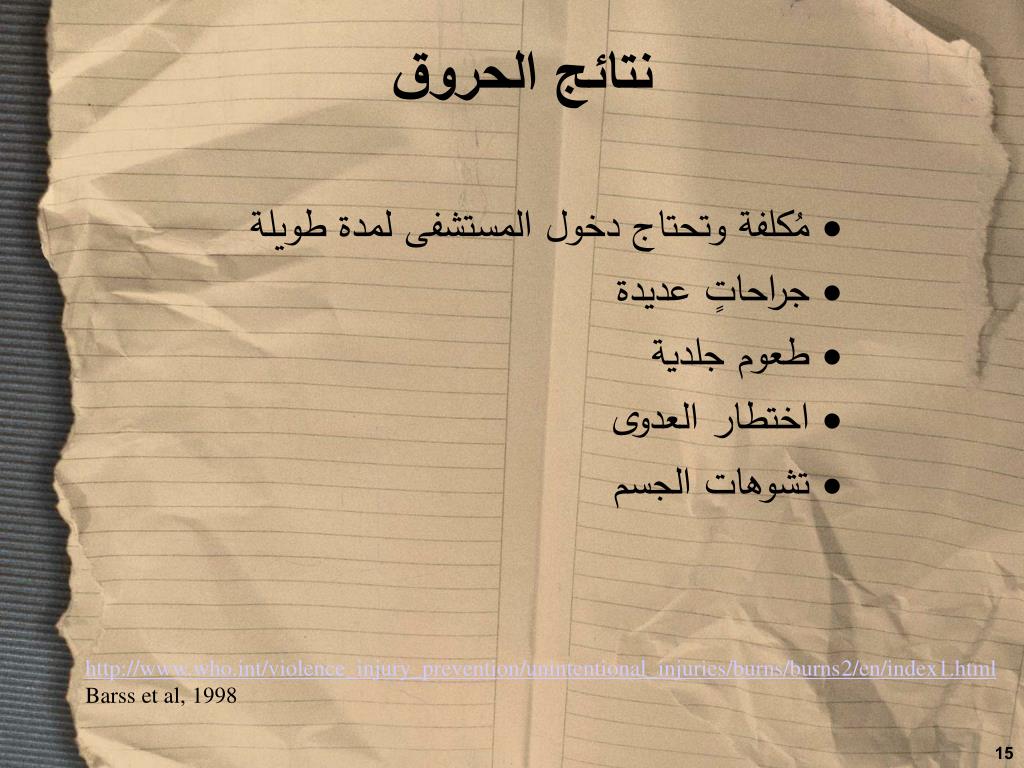 نتائج الحروق
• مُكلفة وتحتاج دخول المستشفى لمدة طويلة
• جراحاتٍ عديدة
• طعوم جلدية
• اختطار العدوى
• تشوهات الجسم
http://www.who.int/violence_injury_prevention/unintentional_injuries/burns/burns2/en/index1.html
Barss et al, 1998
15